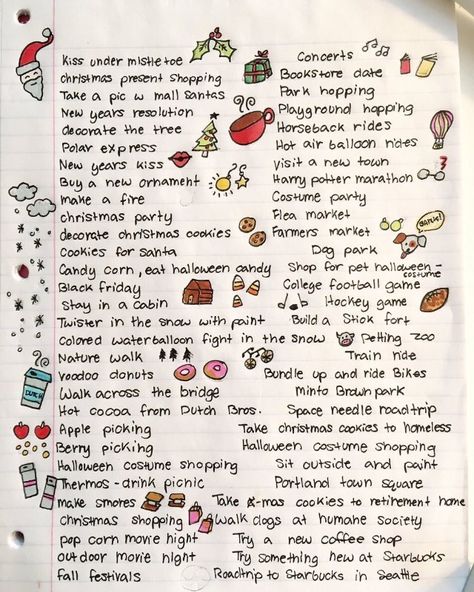 Kiss under mistletoe
christmas present shopping
Take a pic w mall santas
New years resolution
decorate the tree
Polar express
New years kiss
Buy a new ornament
make a fire
christmas party
decorate christmas cookies
Cookies for santa
Candy corn, eat halloween candy
Black Friday
Stay in a cabin
Twister in the snow with paint
Colored waterballoon fight in the snow
Nature walk
voodoo donuts
Walk across the bridge
Hot cocoa from Dutch Bros.
Apple picking
Berry picking
Halloween costume shopping
Thermos - drink picnic
make smores
christmas shopping
pop corn movie night
outdoor movie night
fall festivals
DUTCH
Concerts
Bookstore date
Park hopping
Playground hopping
Horseback rides
Hot air balloon rides
Visit a new town
Harry potter marathon
Costume party
Flea market
Farmers market
BARK!
Dog park
Shop for pet halloween-
costume
College football game
Hockey game
Build a Stick fort
Petting zoo
Train ride
Bundle up and ride Bikes
Minto Brown park
Space needle roadtrip
Take christmas cookies to homeless
Halloween costume shopping
Sit outside and paint
Portland town square
Take x-mas cookies to retirement home
Walk dogs at humane society
Try a new coffee shop
Try something new at Starbucks
Roadtrip to Starbucks in Seattle